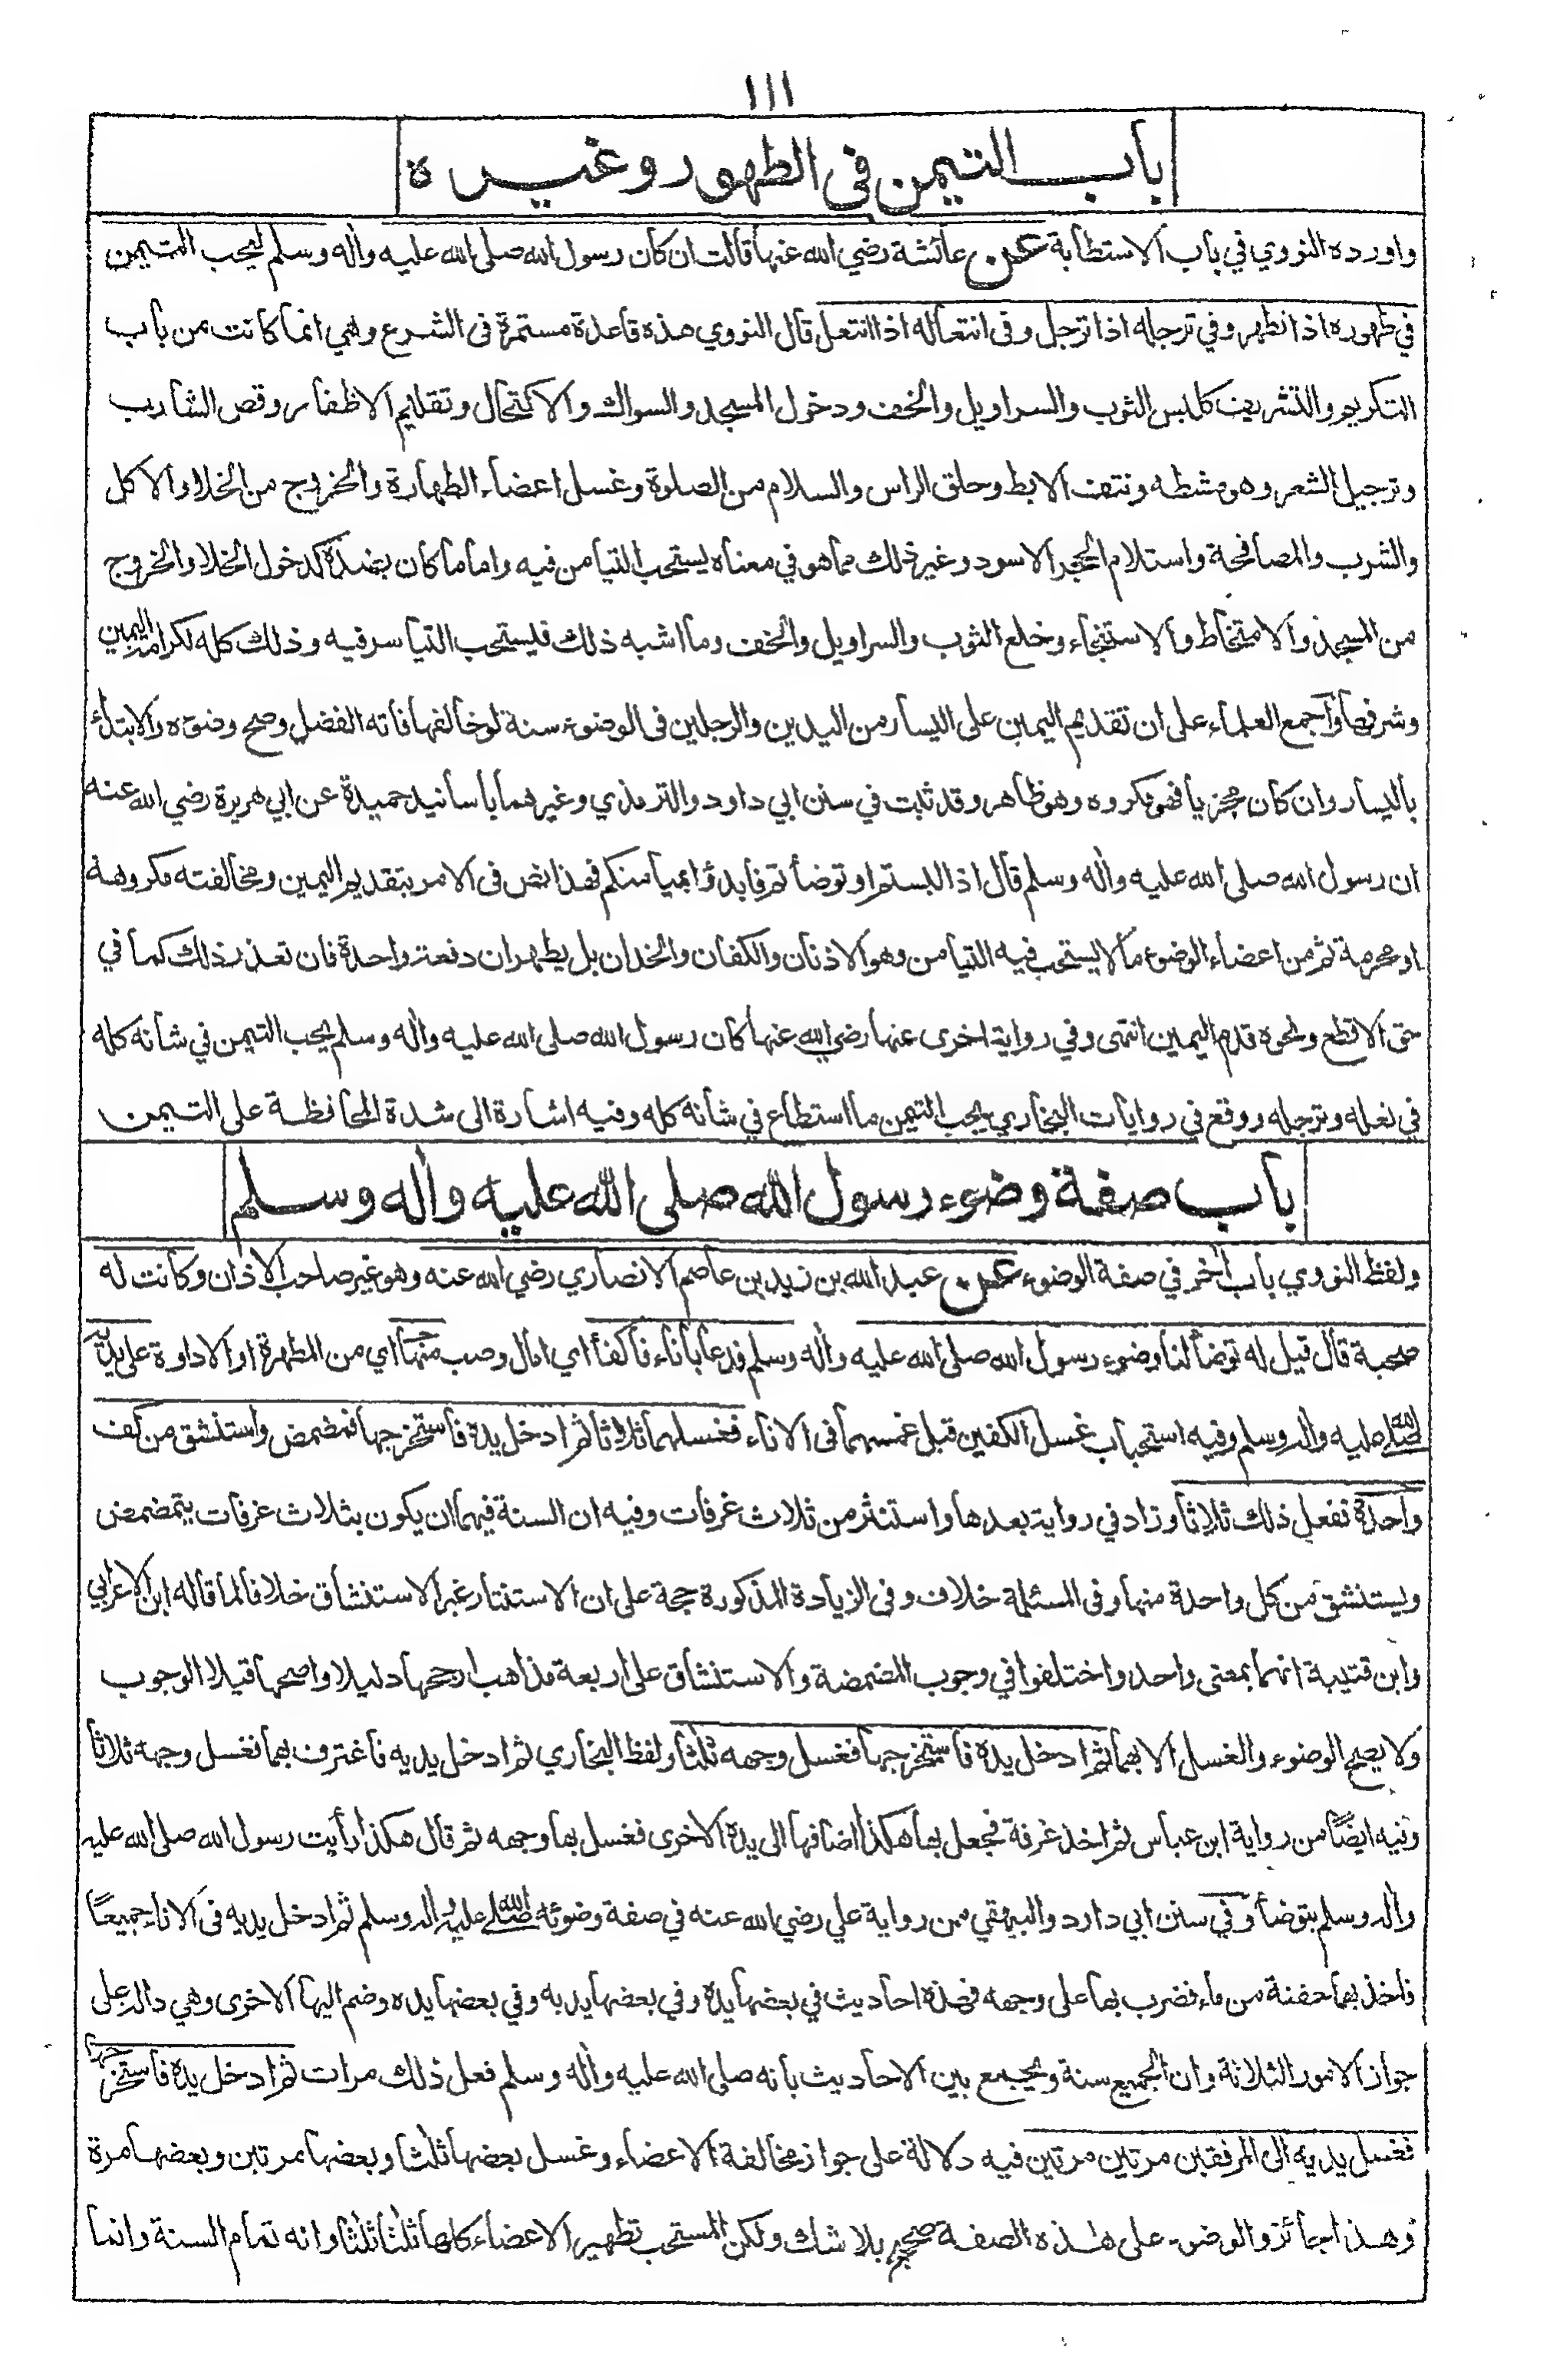 ١١١
باب التيمن فى الطهور وغيره
واورده النووي في باب الاستطابة عن عائشة رضي الله عنها قالت ان كان رسول الله صلى الله عليه واله وسلم ليحب التيمن
في طهوره اذا تطهر وفي ترجله اذا ترجل وفى انتعاله اذا انتعل قال النووي هذه قاعدة مستمرة فى الشرع وهي انما كانت من باب
التكريم والتشريف كلبس الثوب والسراويل والخف ودخول المسجد والسواك والاكتحال وتقليم الاظفار وقص الشارب
وترجيل الشعر وهو مشطه ونتف الابط وحلق الراس والسلام من الصلوة وغسل اعضاء الطهارة والخروج من الخلاء والاكل
والشرب والمصافحة واستلام الحجر الاسود وغير ذلك مما هو في معناه يستحب التيامن فيه واما ما كان بضده كدخول الخلاء والخروج
من المسجد والامتخاط والاستنجاء وخلع الثوب والسراويل والخف وما اشبه ذلك فليستحب التياسر فيه وذلك كله لكرامة اليمين
وشرفها واجمع العلماء على ان تقديم اليمين على اليسار من اليدين والرجلين فى الوضوء سنة لو خالفها فاته الفضل وصح وضوءه والابتداء
باليسار وان كان مجزيا فهو مكروه وهو ظاهر وقد ثبت في سنن ابي داود والترمذي وغيرهما باسانيد حميدة عن ابي هريرة رضي الله عنه
ان رسول الله صلى الله عليه واله وسلم قال اذا لبستم او توضأتم فابدؤا بميامنكم فهذا نص فى الامر بتقديم اليمين ومخالفته مكروهة
او محرمة ثم من اعضاء الوضوء ما لا يستحب فيه التيامن وهو الاذنان والكفان والخدان بل يطهران دفعة واحدة فان تعذر ذلك كما في
حق الاقطع ونحوه قدم اليمين انتهى وفي رواية اخرى عنها رضي الله عنها كان رسول الله صلى الله عليه واله وسلم يحب التيمن في شانه كله
في نعله وترجله ووقع في روايات البخاري يحب التيمن ما استطاع في شأنه كله وفيه اشارة الى شدة المحافظة على التيمن
باب صفة وضوء رسول الله صلى الله عليه واله وسلم
ولفظ النووي باب اخر في صفة الوضوء عن عبد الله بن زيد بن عاصم الانصاري رضي الله عنه وهو غير صاحب الاذان وكانت له
صحبة قال قيل له توضأ لنا وضوء رسول الله صلى الله عليه واله وسلم فدعا باناء فاكفأ اي امال وصب منها اي من المطهرة او الاداوة على يديه
صلى الله عليه واله وسلم وفيه استحباب غسل الكفين قبل غمسهما فى الاناء فغسلهما ثلاثا ثم ادخل يده فاستخرجها فمضمض واستنشق من كف
واحدة ففعل ذلك ثلاثا وزاد في رواية بعدها واستنثر من ثلاث غرفات وفيه ان السنة فيهما ان يكون بثلاث غرفات يتمضمض
ويستنشق من كل واحدة منها وفى المسئلة خلاف وفى الزيادة المذكورة حجة على ان الاستنثار غير الاستنشاق خلافا لما قاله ابن الاعرابي
وابن قتيبة انهما بمعنى واحد واختلفوا في وجوب المضمضة والاستنشاق على اربعة مذاهب ارجحها دليلا واصحها قيلا الوجوب
ولا يصح الوضوء والغسل الا بهما ثم ادخل يده فاستخرجها فغسل وجهه ثلثا ولفظ البخاري ثم ادخل يديه فاغترف بهما فغسل وجهه ثلاثا
وفيه ايضًا من رواية ابن عباس ثم اخذ غرفة فجعل بها هكذا اضافها الى يده الاخرى فغسل بها وجهه ثم قال هكذا رأيت رسول الله صلى الله عليه
واله وسلم يتوضأ وفي سنن ابي داود والبيهقي من رواية علي رضي الله عنه في صفة وضوئه صلى الله عليه واله وسلم ثم ادخل يديه فى الاناء جميعًا
فاخذ بهما حفنة من ماء فضرب بها على وجهه فهذه احاديث في بعضها يده وفي بعضها يديه وفي بعضها يده وضم اليها الاخرى وهي دالة على
جواز الامور الثلاثة وان الجميع سنة ويجمع بين الاحاديث بانه صلى الله عليه واله وسلم فعل ذلك مرات ثم ادخل يده فاستخرجها
فغسل يديه الى المرفقين مرتين مرتين فيه دلالة على جواز مخالفة الاعضاء وغسل بعضها ثلثا وبعضها مرتين وبعضها مرة
وهذا جائز والوضوء على هذه الصفة صحيح بلا شك ولكن المستحب تطهير الاعضاء كلها ثلثا ثلثا وانه تمام السنة وانما